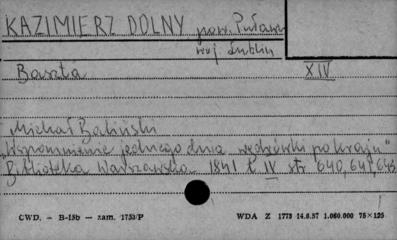 KAZIMIERZ DOLNY pow. Puławy
woj. Lublin
Baszta XIV
Michał Baliński
"Wspomnienie jednego dnia wędrówki po kraju"
Biblioteka Warszawska 1841 t. IV str 640, 641, 645
CWD. — B-15b — zam. 1753/P WDA Z 1773 14.6.57 1.060.000 75×125